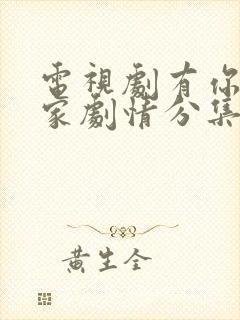 電視劇有你
家劇情分集
黃生全